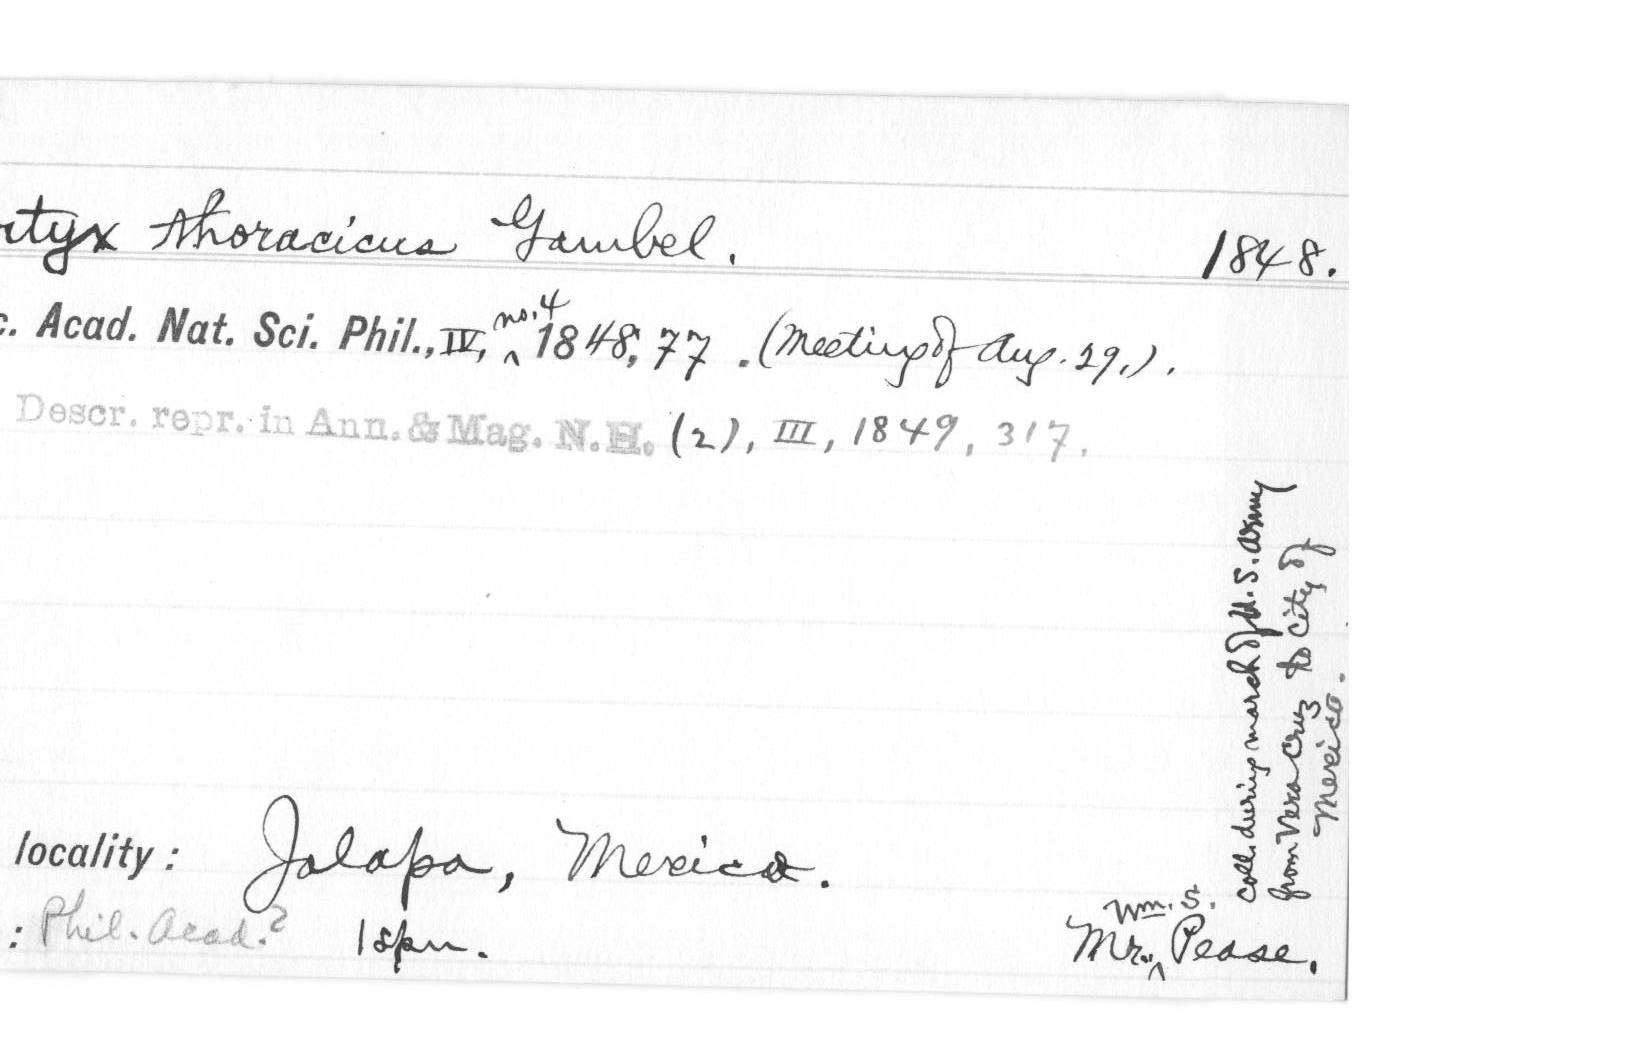 rtyx thoracicus Gambel. 1848.
c. Acad. Nat. Sci. Phil., IV, no. 4 1848, 77. (Meeting of Aug. 29,).
Descr. repr. in Ann. & Mag. N.H. (2), III, 1849, 317.
locality: Jalapa, Mexico.
: Phil. Acad.? 1 spm. Mr. Wm. S. Pease.
Coll. during march of U.S. Army
from Vera Cruz to City of
Mexico.